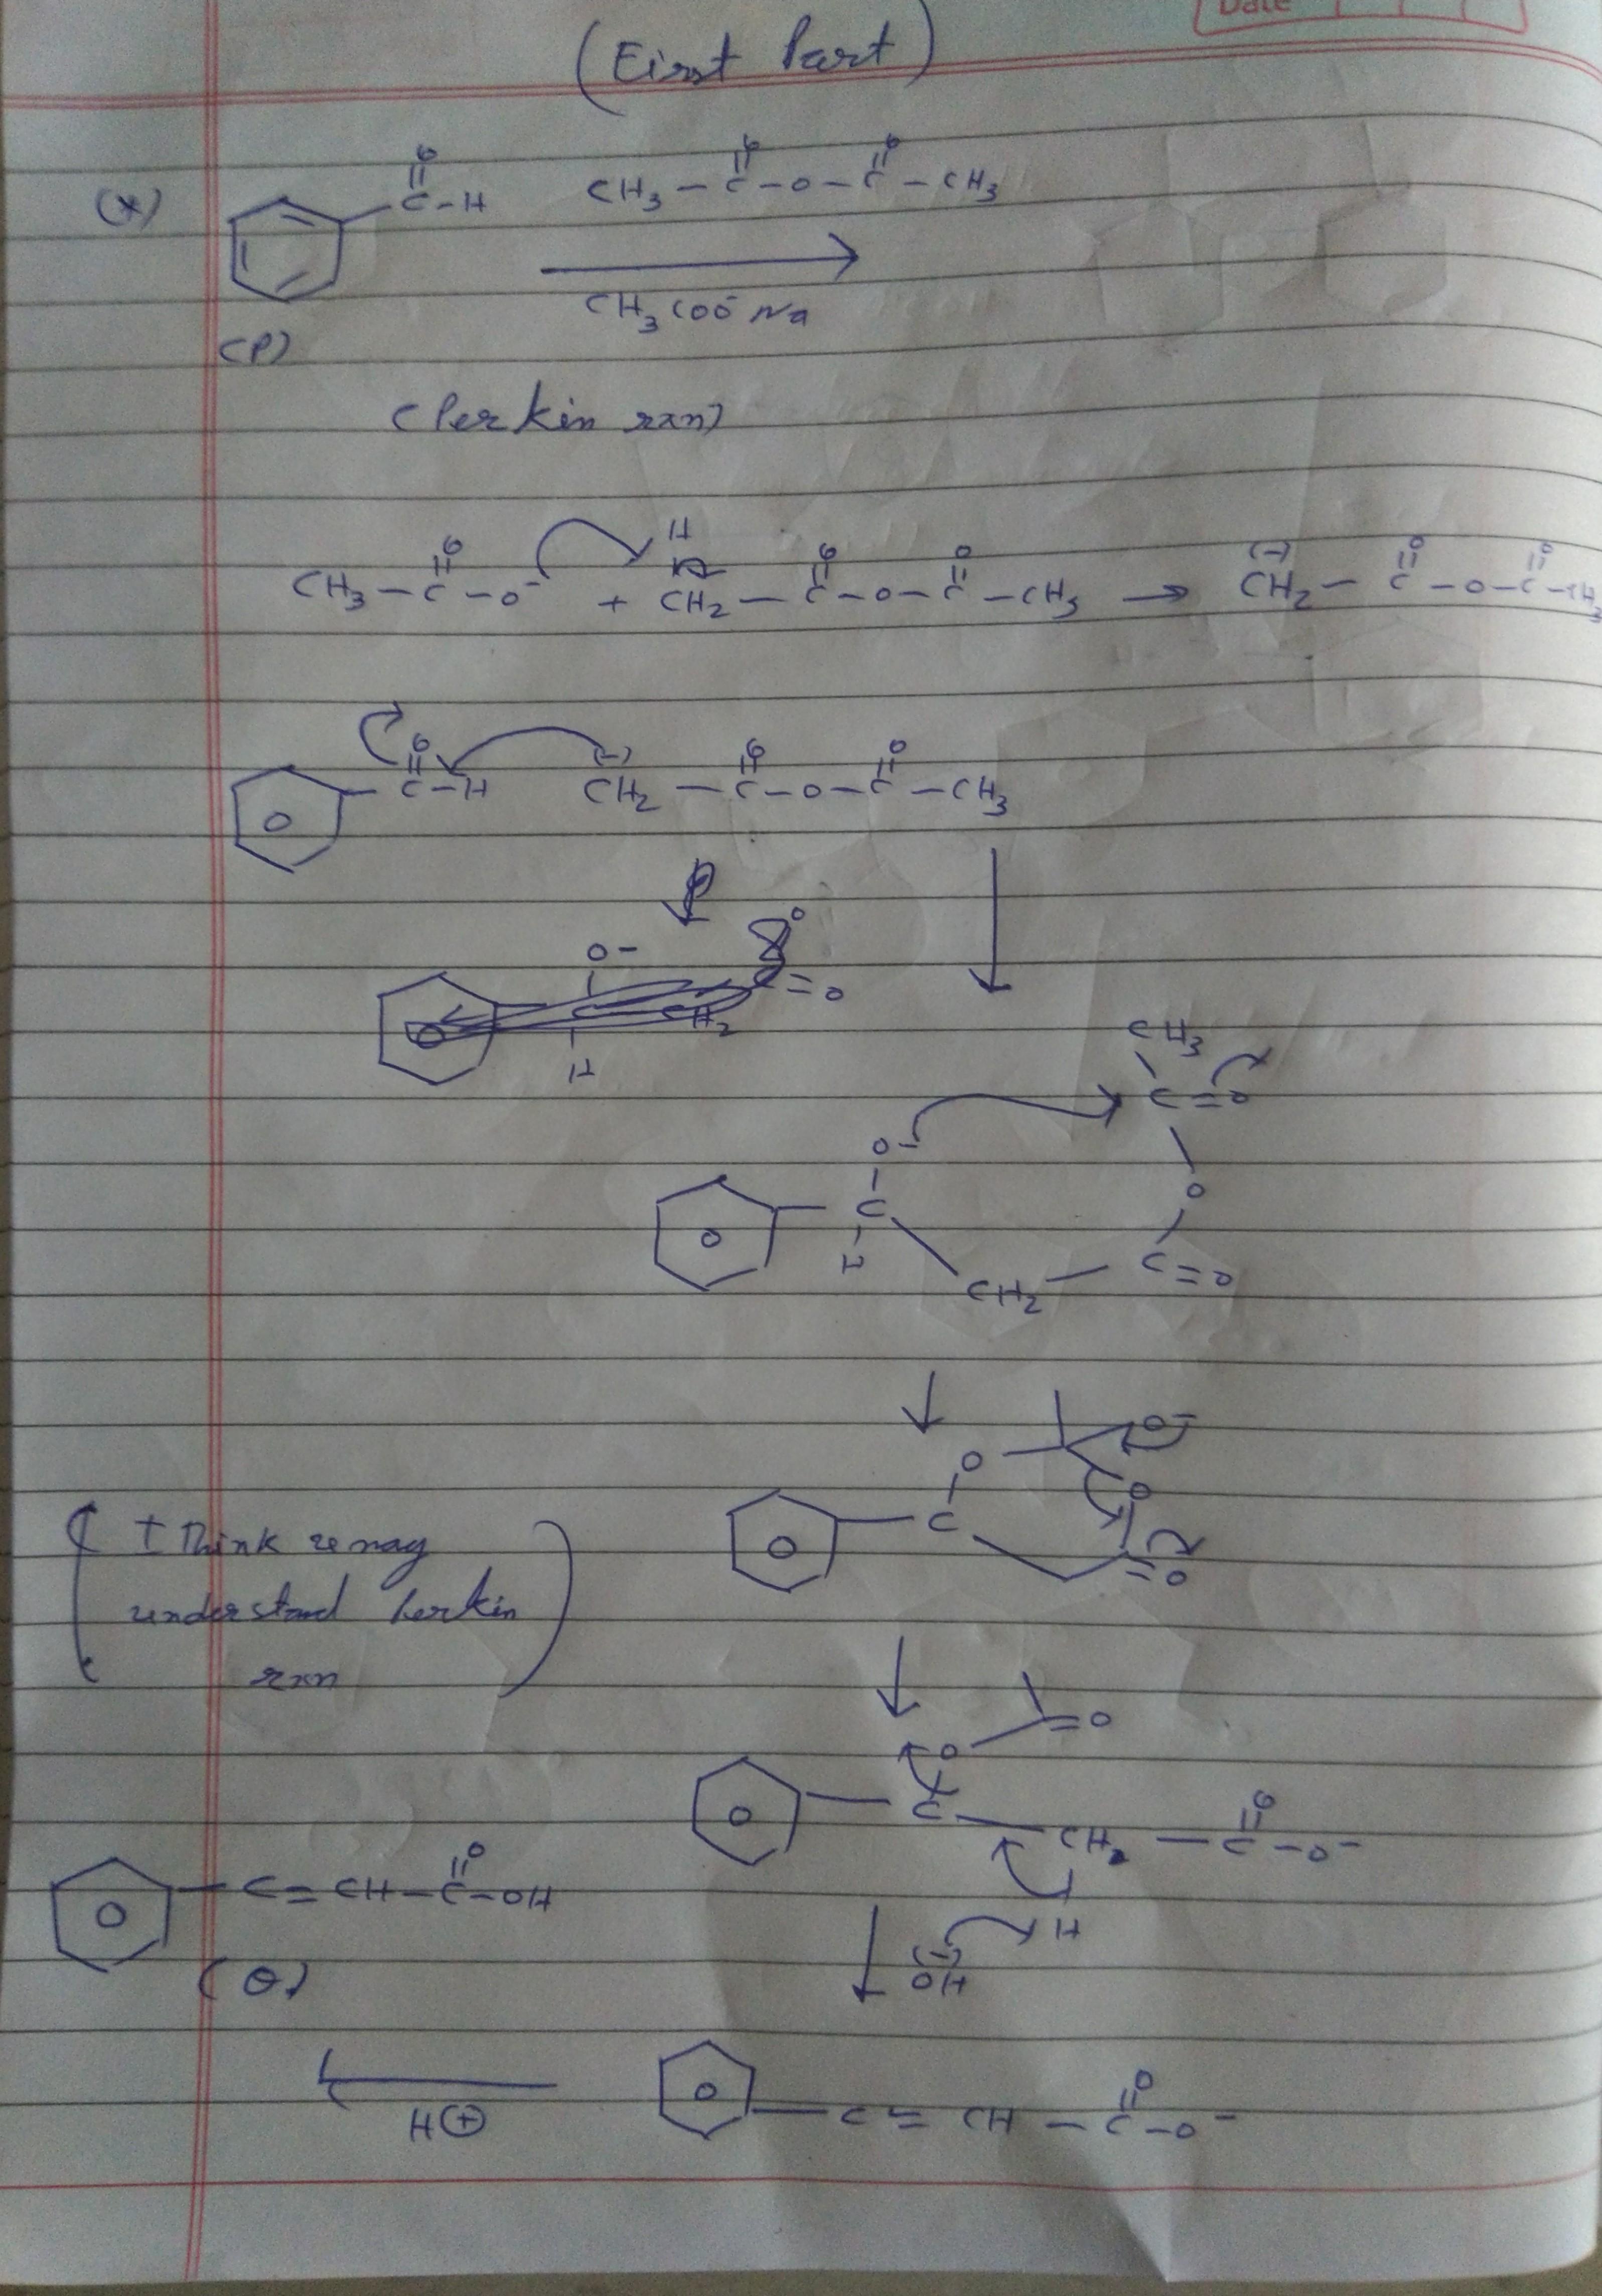 Date
(First Part)
(*)
O
C-H
CH3 - C - O - C - CH3
O O
CH3COO⁻Na
(P)
(Perkin rxn)
O H O O (-) O O
CH3 - C - O⁻ + CH2 - C - O - C - CH3 → CH2 - C - O - C - CH3
O (-) O O
C-H CH2 - C - O - C - CH3
O
O- = O
CH2
H
CH3
C=O
O-
O
C
H C=O
CH2
O-
O
O
C
=O
(I think u may
understand Perkin
rxn)
=O
O
C - CH2 - C - O⁻
O
H
(-)
OH
O
C = CH - C - OH
(Q)
H⊕
O
C = CH - C - O⁻